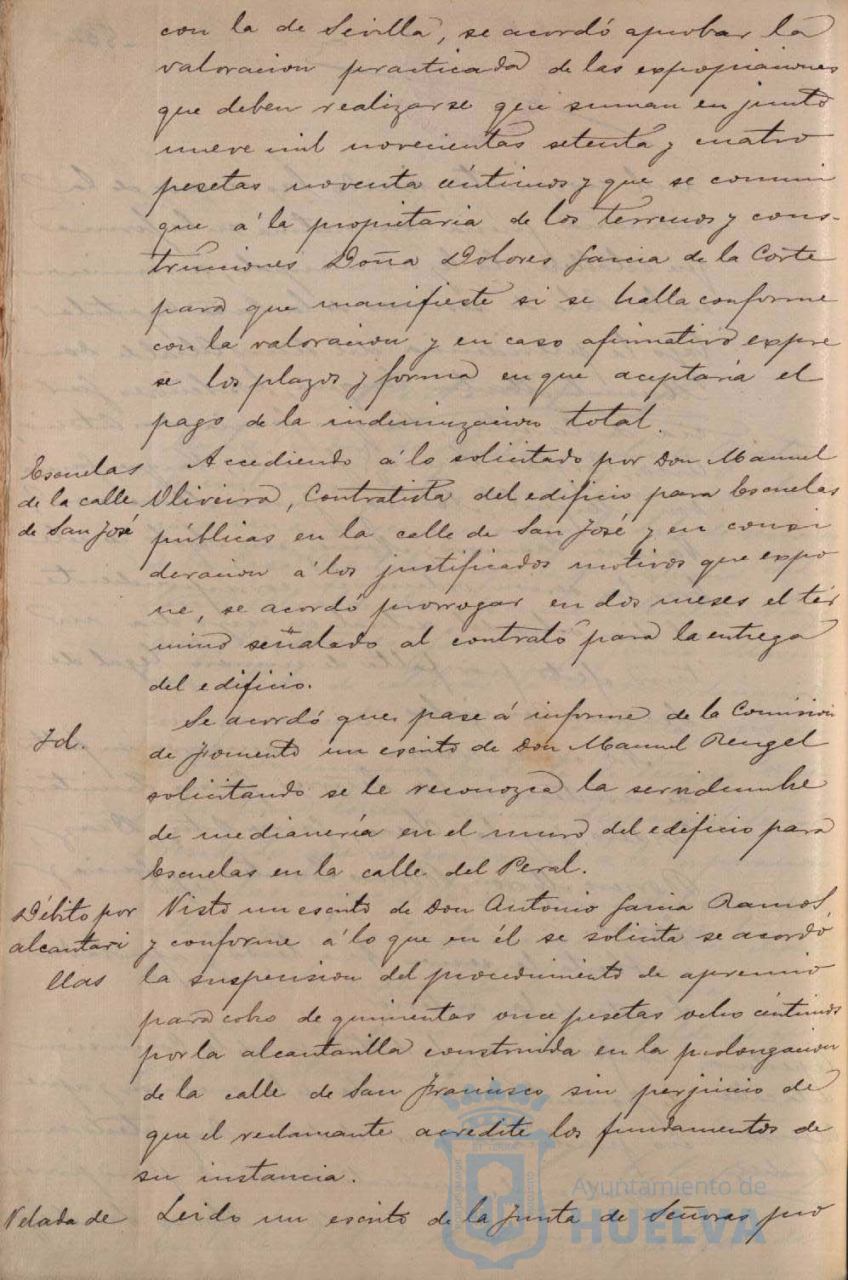 con la de Sevilla, se acordó aprobar la
valoracion practicada de las expropiaciones
que deben realizarse que suman en junto
nueve mil novecientas setenta y cuatro
pesetas noventa céntimos y que se comuni
que á la propietaria de los terrenos y cons-
trucciones Doña Dolores Garcia de la Corte
para que manifieste si se halla conforme
con la valoracion y en caso afirmativo expre
se los plazos y forma en que aceptaría el
pago de la indemnizacion total.
Escuelas
de la calle
de San José
Accediendo á lo solicitado por Don Manuel
Oliveira, Contratista del edificio para Escuelas
públicas en la calle de San José y en consi
deracion á los justificados motivos que expo
ne, se acordó prorrogar en dos meses el tér
mino señalado al contrato para la entrega
del edificio.
Id.
Se acordó que pase á informe de la Comision
de Fomento un escrito de Don Manuel Rengel
solicitando se le reconozca la servidumbre
de medianería en el muro del edificio para
Escuelas en la calle del Peral.
Débito por
alcantari
llas
Visto un escrito de Don Antonio Garcia Ramos
y conforme á lo que en él se solicita se acordó
la suspension del procedimiento de apremio
para cobro de quinientas once pesetas ocho céntimos
por la alcantarilla construida en la prolongacion
de la calle de San Francisco sin perjuicio de
que el reclamante acredite los fundamentos de
su instancia.
Velada de
Leido un escrito de la Junta de Señoras pro
Ayuntamiento de
HUELVA